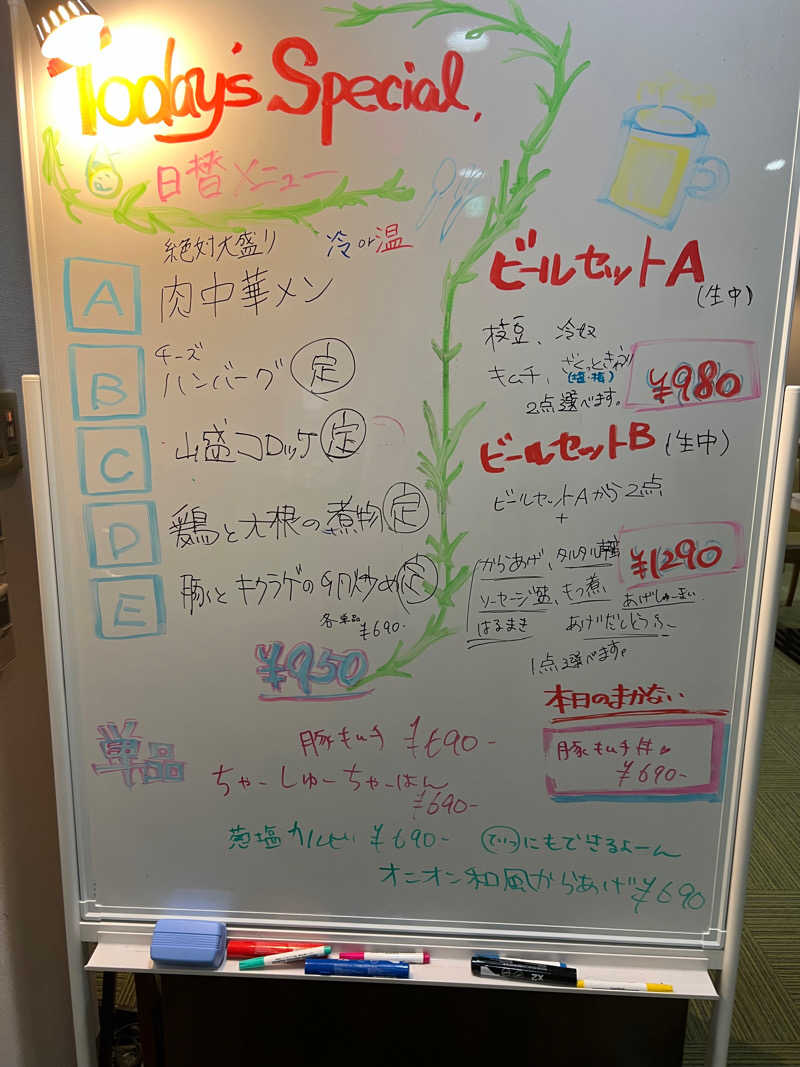 Today's Special.
日替メニュー
絶対大盛り 冷or温
A 肉中華メン
チーズ
B ハンバーグ 定
C 山盛コロッケ 定
D 鶏と大根の煮物 定
E 豚とキクラゲの卵炒め 定
各単品
¥690-
¥950
ビールセットA
(生中)
枝豆、冷奴
キムチ、ざくっときゅうり
(塩・梅)
2点選べます。
¥980
ビールセットB (生中)
ビールセットAから2点
+
からあげ、タルタル
¥1290
ソーセージ、もつ煮、あげしゅーまい
はるまき あげだしどうふー
1点選べます。
本日のまかない
豚キムチ丼
¥690-
単品
豚キムチ ¥690-
ちゃーしゅーちゃーはん
¥690-
葱塩カルビ ¥690- にもできるよーん
オニオン和風からあげ ¥690
X2